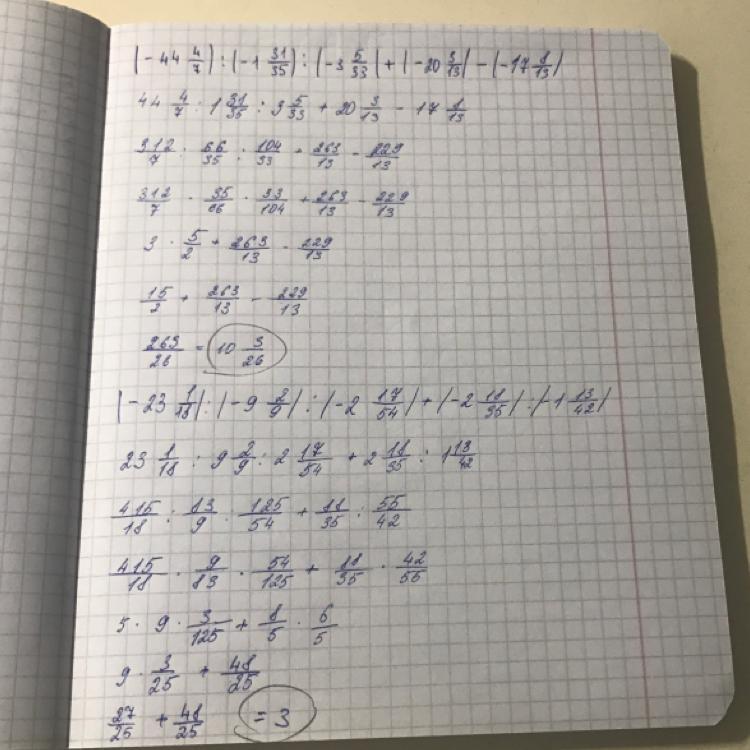 |-44 4/7| : |-1 31/35| : |-3 5/33| + |-20 3/13| - |-17 8/13|
44 4/7 : 1 31/35 : 3 5/33 + 20 3/13 - 17 8/13
312/7 : 66/35 : 104/33 + 263/13 - 229/13
312/7 · 35/66 · 33/104 + 263/13 - 229/13
3 · 5/2 + 263/13 - 229/13
15/2 + 263/13 - 229/13
263/26 = 10 3/26
|-23 1/18| : |-9 2/9| : |-2 17/54| + |-2 18/35| : |-1 13/42|
23 1/18 : 9 2/9 : 2 17/54 + 2 18/35 : 1 13/42
415/18 : 83/9 : 125/54 + 88/35 : 55/42
415/18 · 9/83 · 54/125 + 88/35 · 42/55
5 · 9 · 3/125 + 8/5 · 6/5
9 · 3/25 + 48/25
27/25 + 48/25 = 3